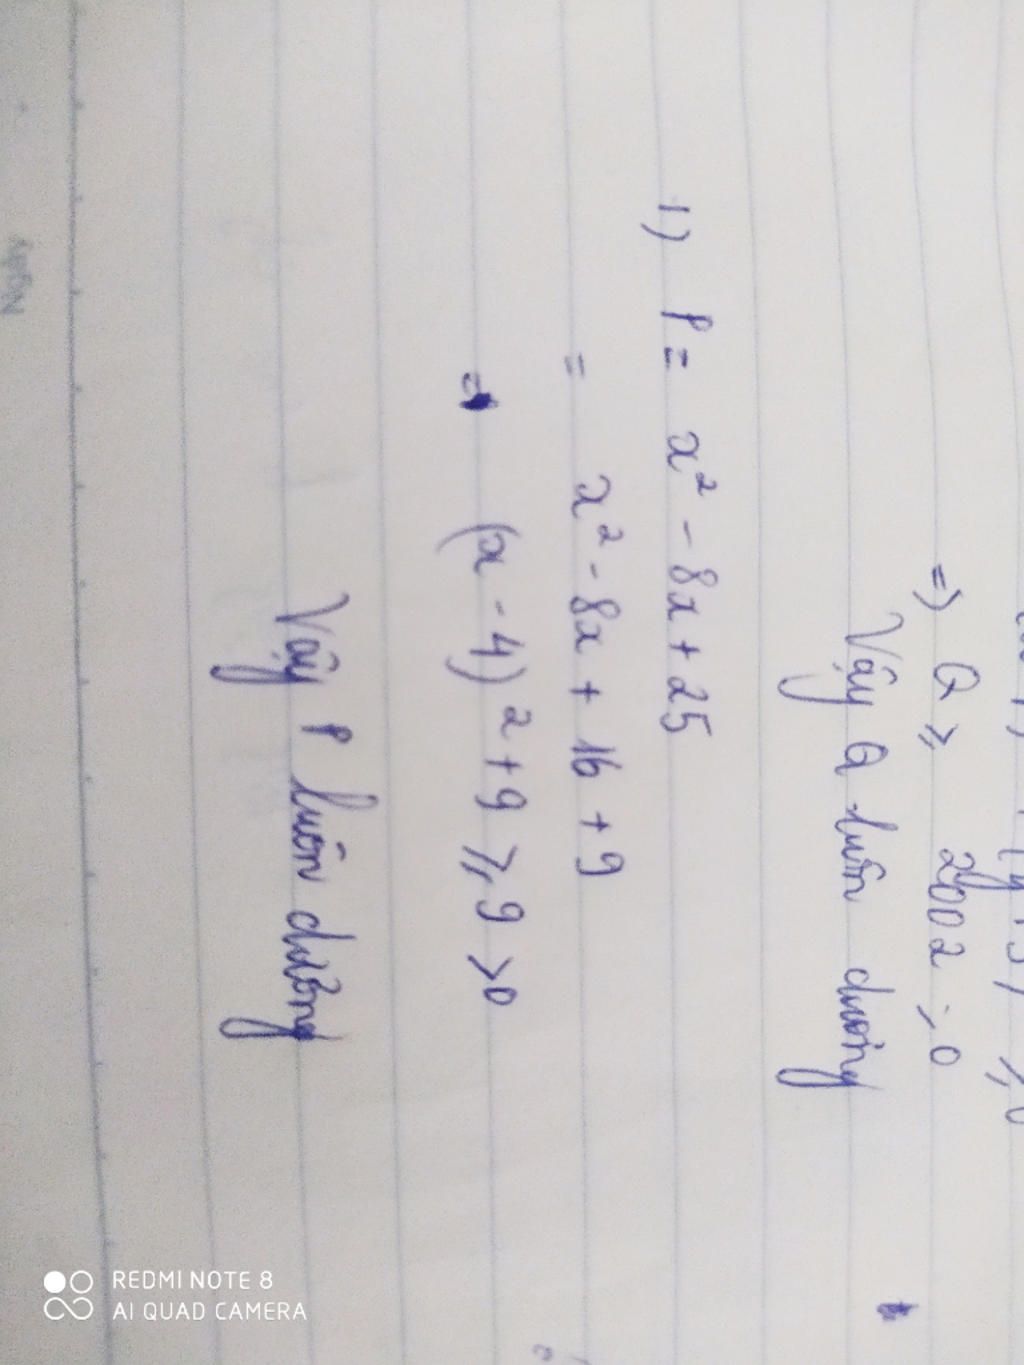 =) Q ≥ 2002 > 0
Vậy Q luôn dương
1) P = x² - 8x + 25
= x² - 8x + 16 + 9
= (x - 4)² + 9 ≥ 9 > 0
Vậy P luôn dương
Ngày
REDMI NOTE 8
AI QUAD CAMERA